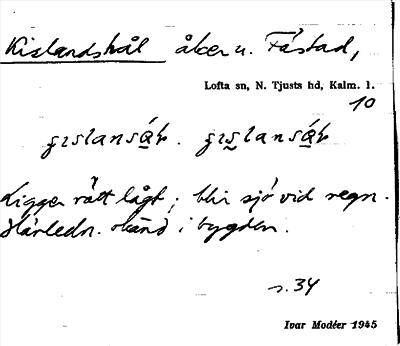 Kislandshål åker u. Fåstad,
Lofta sn, N. Tjusts hd, Kalm. l.
10
Ligger rätt lågt; blir sjö vid regn.
Härledn. okänd i bygden.
s. 34
Ivar Modéer 1945